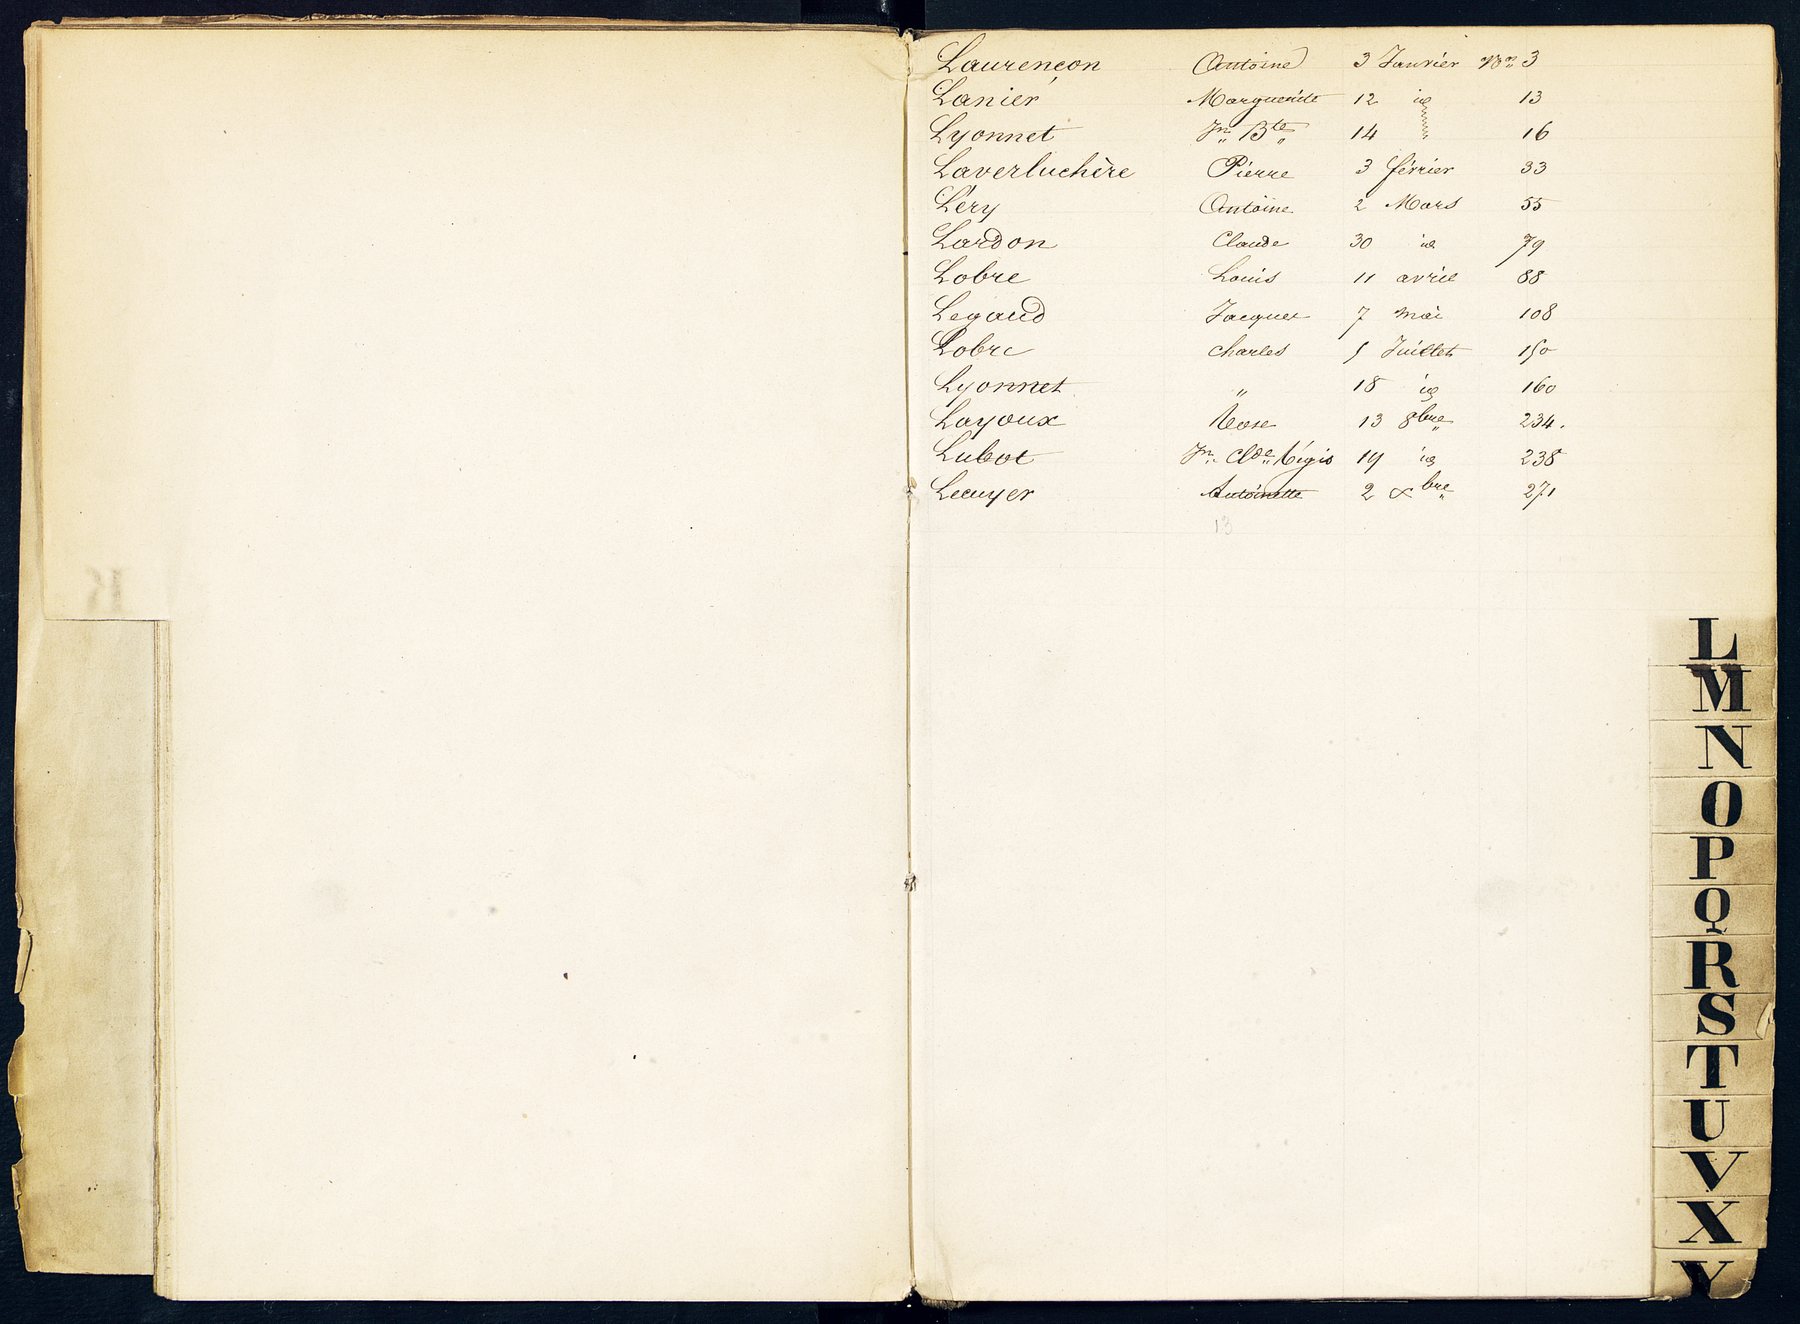 Laurençon Antoine 3 Janvier Nos 3
Lanier Marguerite 12 id 13
Lyonnet Jn Bte 14 " 16
Laverluchère Pierre 3 février 33
Léry Antoine 2 Mars 55
Lardon Claude 30 id 79
Lobre Louis 11 avril 88
Legaud Jacques 7 mai 108
Lobre Charles 5 Juillet 150
Lyonnet " 18 id 160
Layoux Rose 13 8bre 234.
Lubot Jn Clde Régis 19 id 238
Lecuyer Antoinette 2 xbre 271
13
K
L
M
N
O
P
Q
R
S
T
U
V
X
Y